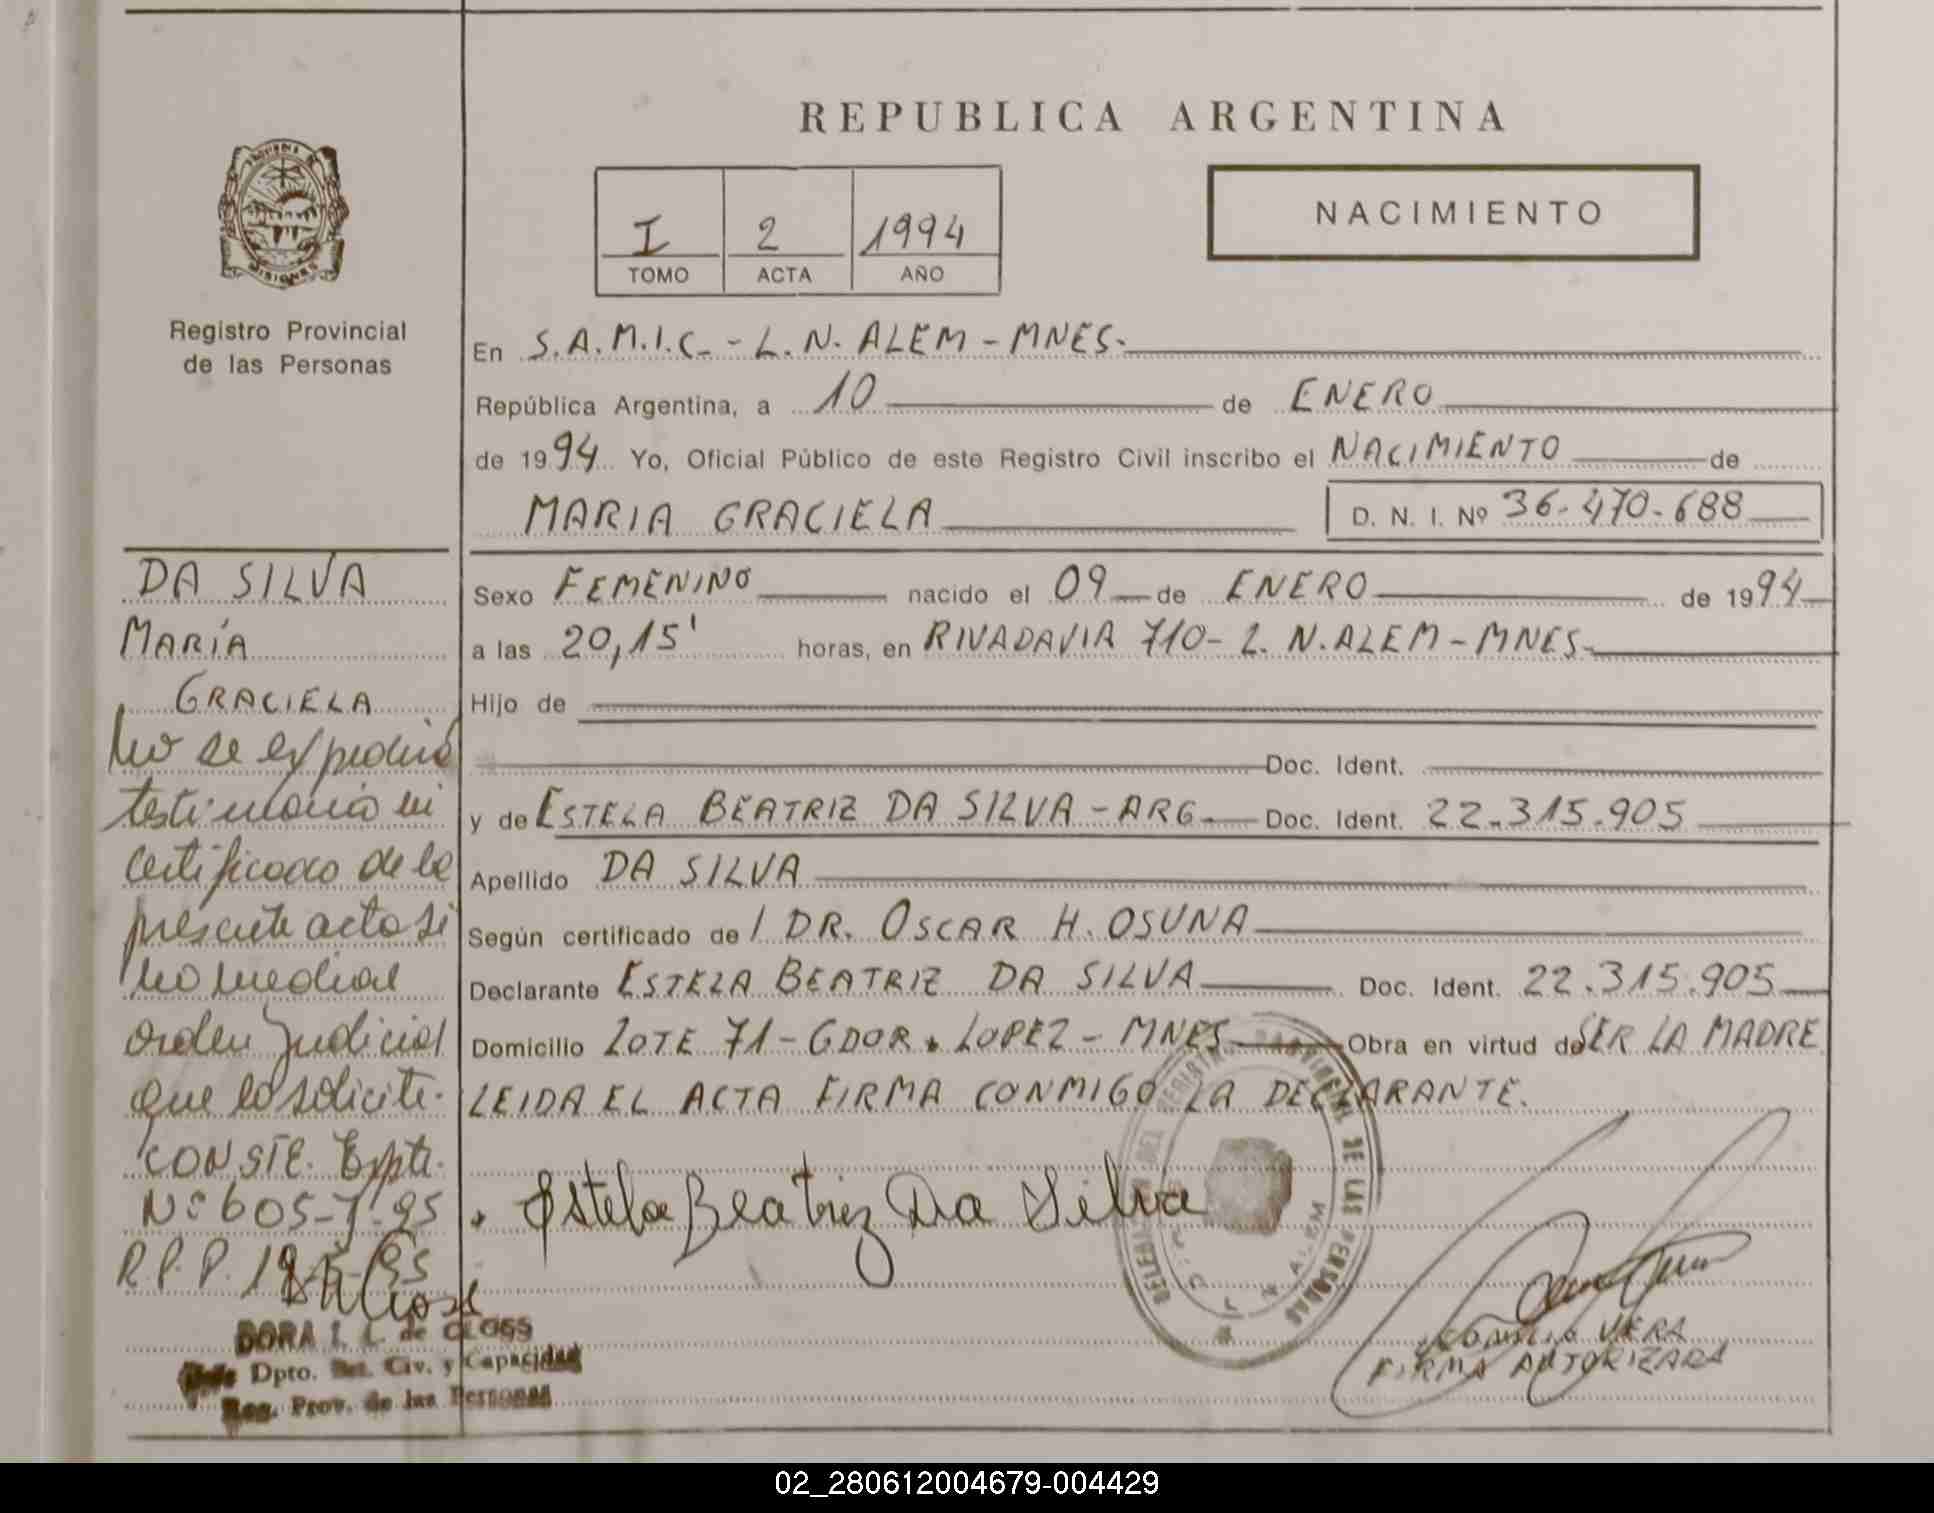 REPUBLICA ARGENTINA
I 2 1994
TOMO ACTA AÑO
NACIMIENTO
MISIONES
Registro Provincial
de las Personas
En S.A.M.I.C. - L. N. ALEM - MNES.
República Argentina, a 10 de ENERO
de 1994 Yo, Oficial Público de este Registro Civil inscribo el NACIMIENTO de
MARIA GRACIELA D. N. I. Nº 36.470.688
Sexo FEMENINO nacido el 09 de ENERO de 1994
a las 20,15' horas, en RIVADAVIA 710 - L. N. ALEM - MNES.
Hijo de
Doc. Ident.
y de ESTELA BEATRIZ DA SILVA - ARG. Doc. Ident. 22.315.905
Apellido DA SILVA
Según certificado de / DR. OSCAR H. OSUNA
Declarante ESTELA BEATRIZ DA SILVA Doc. Ident. 22.315.905
Domicilio LOTE 71 - GDOR. LOPEZ - MNES Obra en virtud de SER LA MADRE
LEIDA EL ACTA FIRMA CONMIGO LA DECLARANTE.
Estela Beatriz Da Silva
DELEGACION DEL REGISTRO PROVINCIAL DE LAS PERSONAS
L. N. ALEM
VERA
FIRMA AUTORIZADA
DA SILVA
MARÍA
GRACIELA
No se expedirá
testimonio ni
certificado de la
presente acta si
no media
orden judicial
que lo solicite.
CONSTE. Expte.
Nº 605-7-95
R.P.P. 19-5-95
DORA I. L. de CLOSS
Jefe Dpto. Est. Civ. y Capacidad
Reg. Prov. de las Personas
02_280612004679-004429